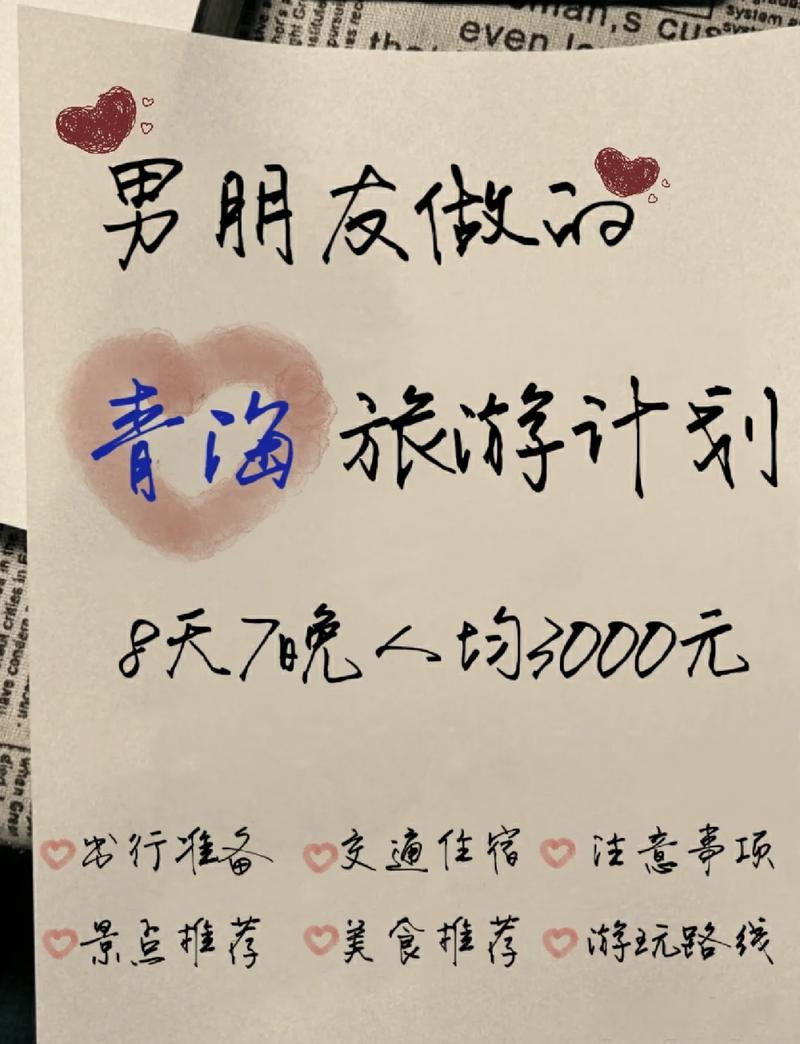 man,s cus
system a
even lo
男朋友做的
青海旅游计划
8天7晚人均3000元
出行准备 交通住宿 注意事项
景点推荐 美食推荐 游玩路线